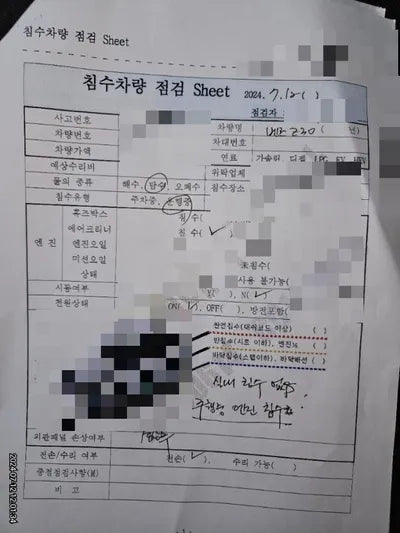 침수차량 점검 Sheet
침수차량 점검 Sheet 2024. 7.12( )
점검자 :
사고번호 차량명 벤츠 ( 년)
차량번호 차대번호
차량가액 연료 가솔린, 디젤, LPG, EV, HEV
예상수리비 위탁업체
물의 종류 해수, 담수, 오폐수 침수장소
침수유형 주차중, 운행중
엔 진
퓨즈박스 침/수(
에어크리너 침 수( ✓
엔진오일
미션오일 미침수(
상태 사용 불가능(
시동여부 ), N( ✓
전원상태 ON( ✓, OFF( ), 방전포함(
완전침수(대쉬보드 이상) ( )
반침수(시트 이하), 엔진½ ( )
바닥침수(스텝이하), 바닥배선 ( )
실내 침수 없음
주행중 엔진 침수
외판패널 손상여부
전손/수리 여부 전손( ✓ ), 수리 가능( )
중점점검사항(M)
비 고
- 1 -
2024/07/12 12:01:34